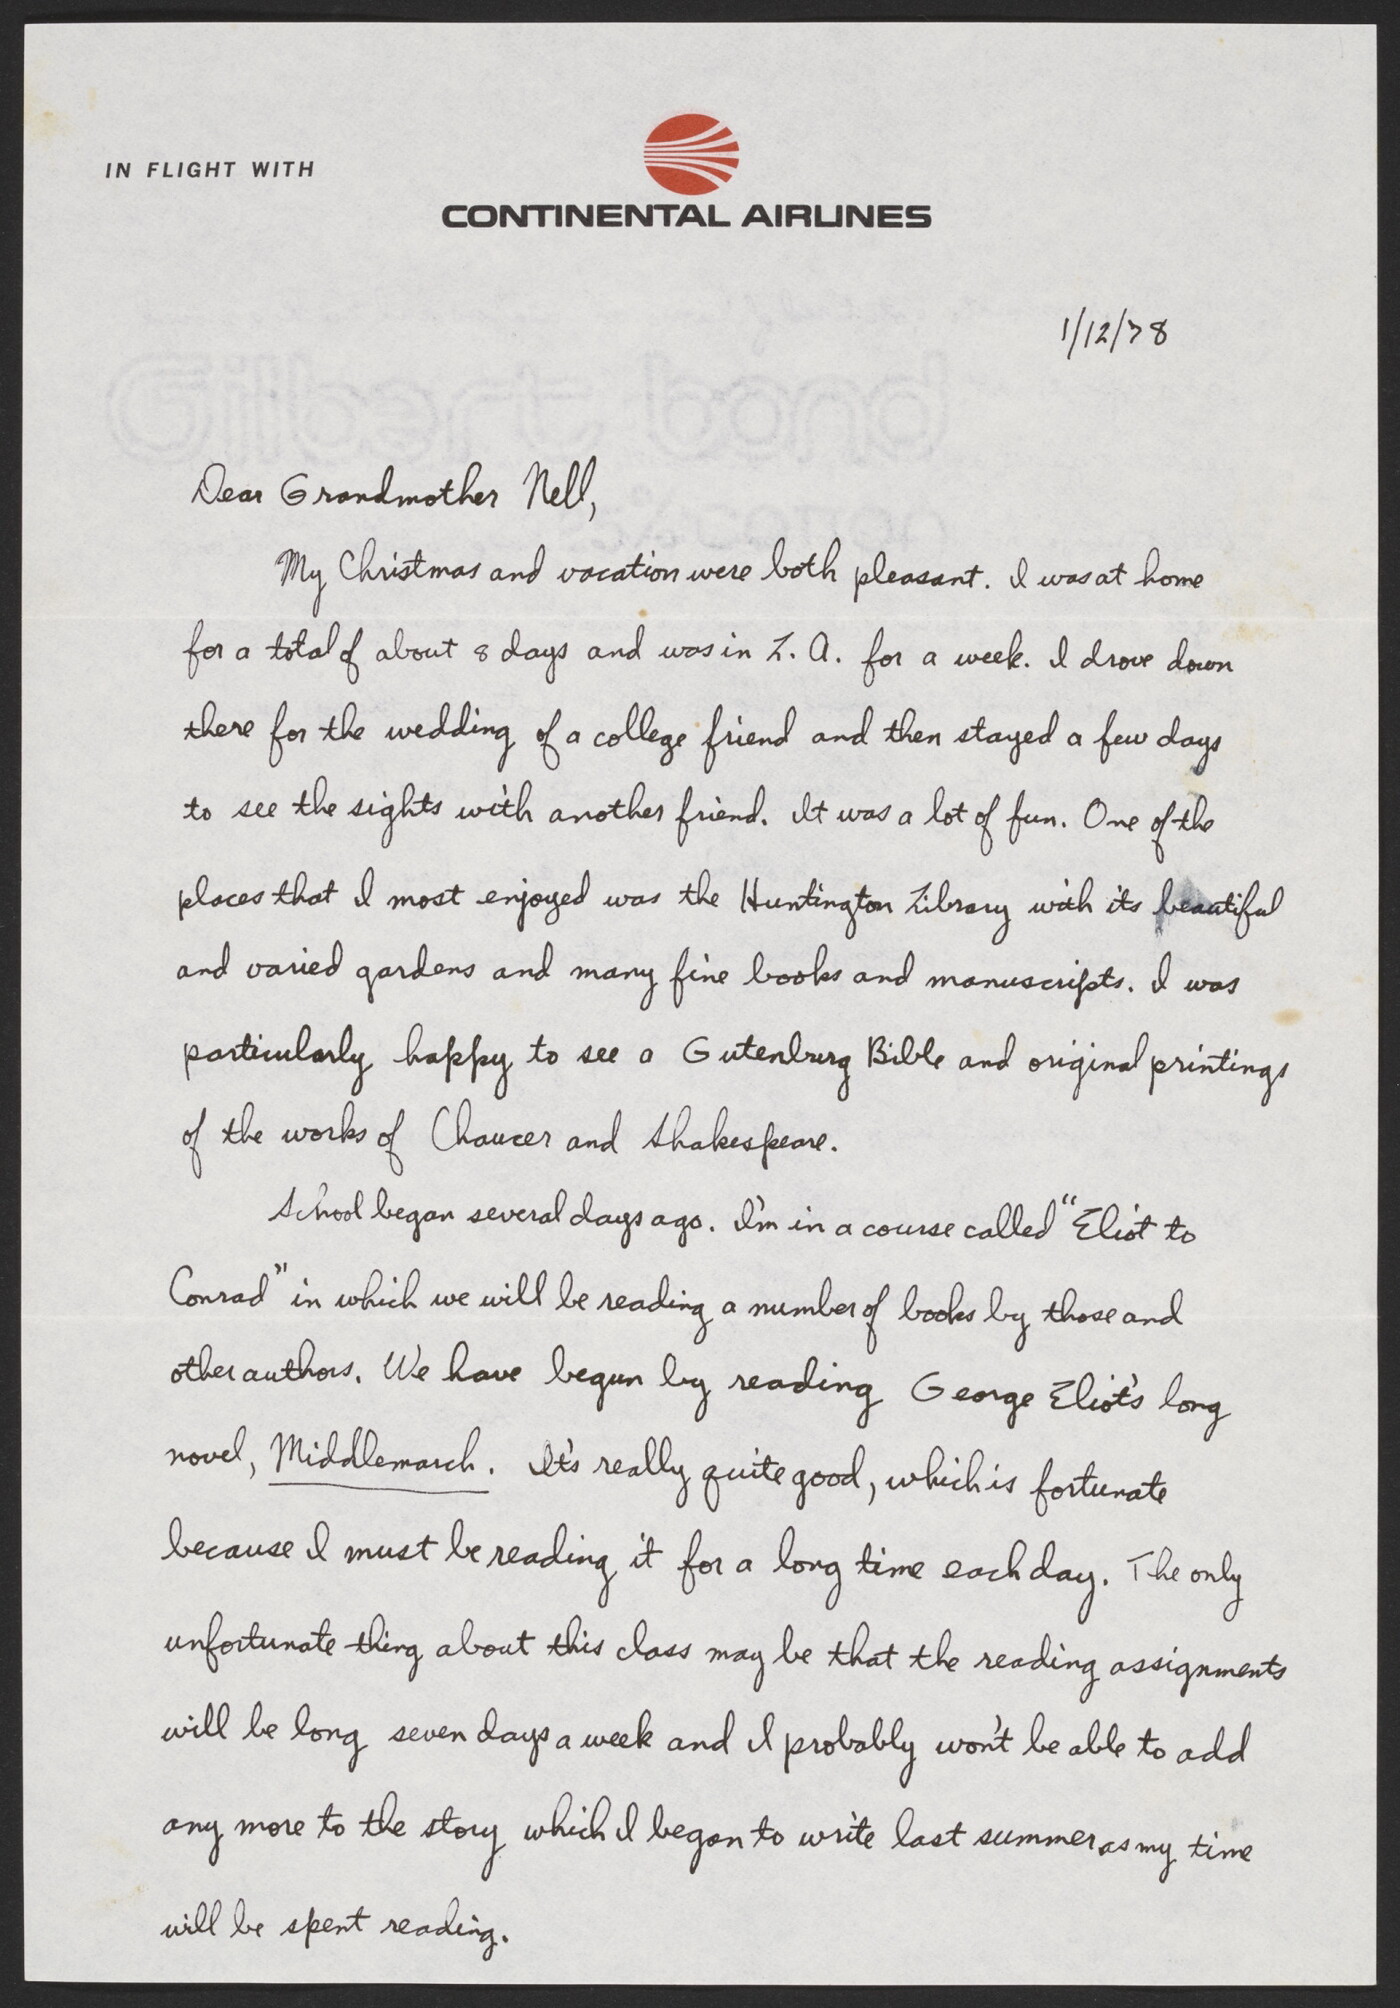 IN FLIGHT WITH
CONTINENTAL AIRLINES
1/12/78
Dear Grandmother Nell,
My Christmas and vacation were both pleasant. I was at home
for a total of about 8 days and was in L. A. for a week. I drove down
there for the wedding of a college friend and then stayed a few days
to see the sights with another friend. It was a lot of fun. One of the
places that I most enjoyed was the Huntington Library with its beautiful
and varied gardens and many fine books and manuscripts. I was
particularly happy to see a Gutenburg Bible and original printings
of the works of Chaucer and Shakespeare.
School began several days ago. I'm in a course called "Eliot to
Conrad" in which we will be reading a number of books by those and
other authors. We have begun by reading George Eliot's long
novel, Middlemarch. It's really quite good, which is fortunate
because I must be reading it for a long time each day. The only
unfortunate thing about this class may be that the reading assignments
will be long seven days a week and I probably won't be able to add
any more to the story which I began to write last summer as my time
will be spent reading.